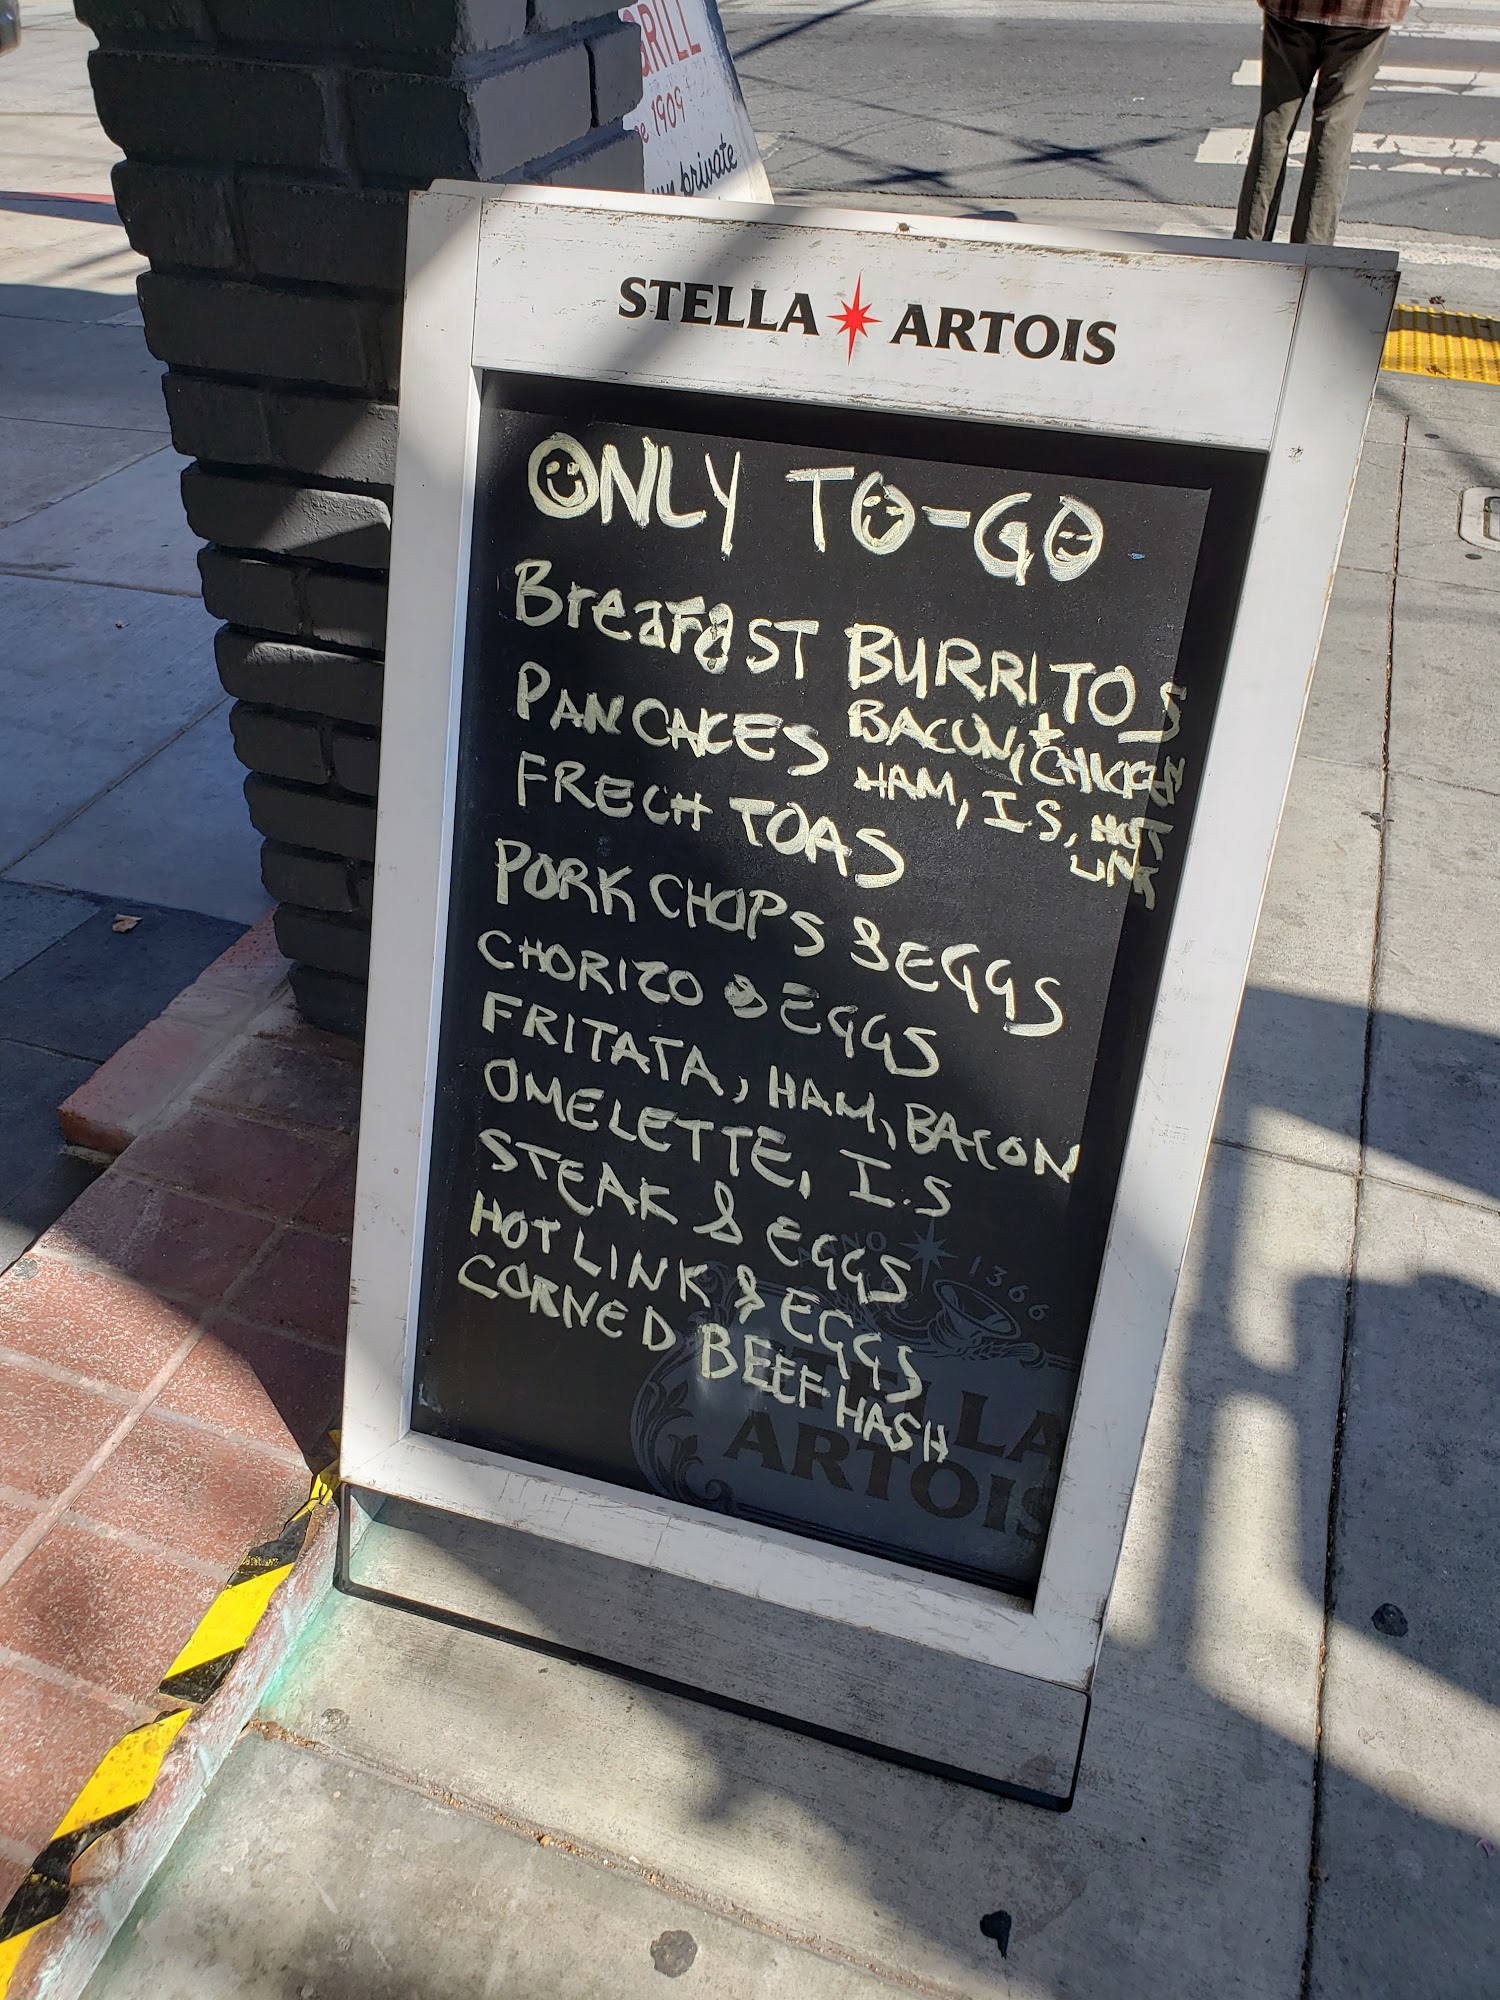 GRILL
1909
private
STELLA ARTOIS
ONLY TO-GO
Breafast BURRITOS
PANCAKES BACON, + CHICKEN
HAM, I.S, HOT
LINK
FRECH TOAS
PORK CHOPS & EGGS
CHORIZO & EGGS
FRITATA, HAM, BACON
OMELETTE, I.S
STEAK & EGGS
HOT LINK & EGGS
CORNED BEEF HASH
ANNO 1366
STELLA
ARTOIS